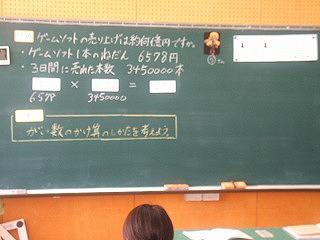 ゲームソフトの売り上げは約何億円ですか。
・ゲームソフト1本のねだん 6578円
・3日間に売れた本数 3450000本
× =
6578 3450000
がい数のかけ算のしかたを考えよう。